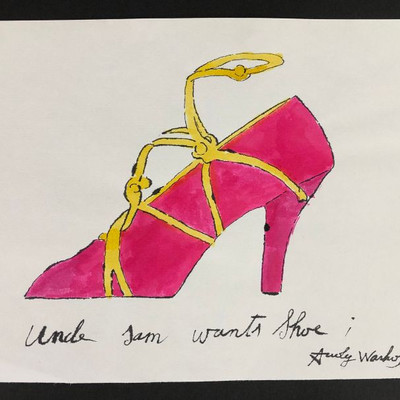 Uncle Sam wants Shoe ¡
Andy Warhol